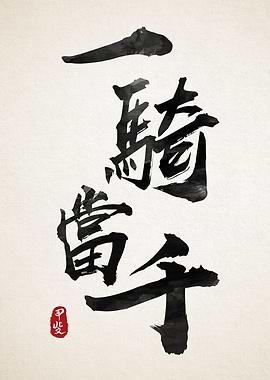 一騎當千
甲斐